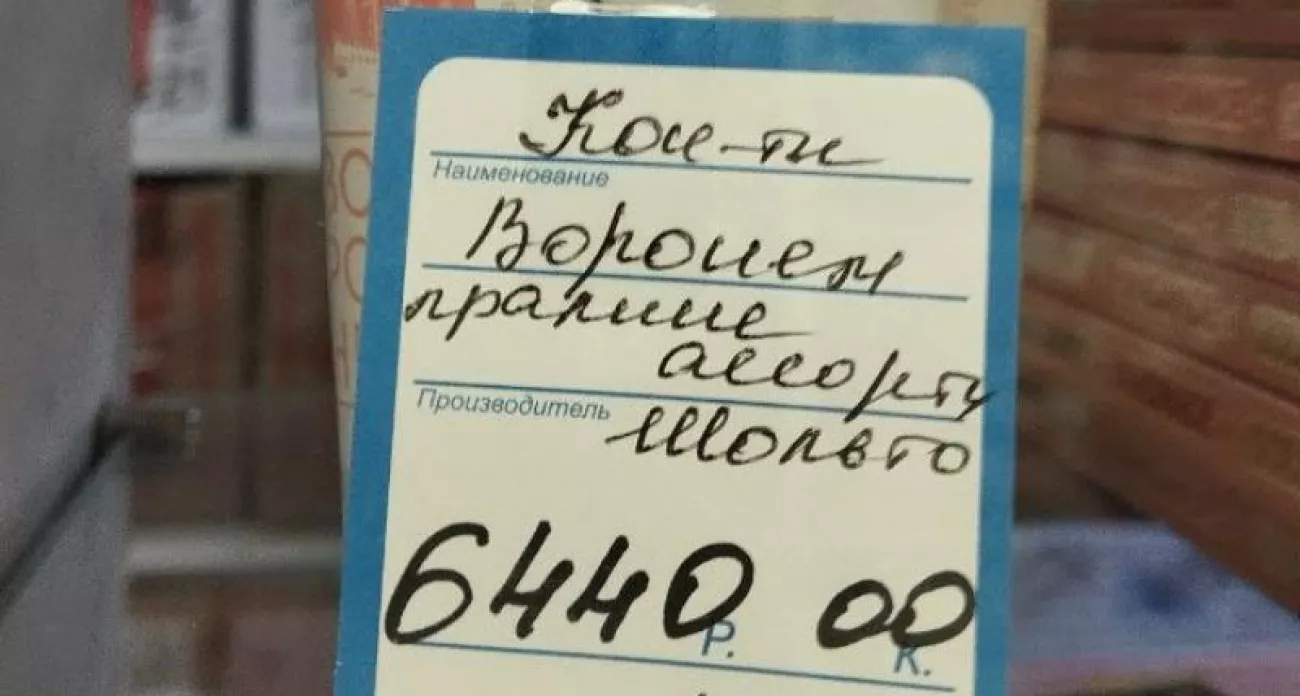 Кон-ты
Наименование
Воронеж
пралине
ассорти
Производитель
Шольто
6440 00
Р. К.